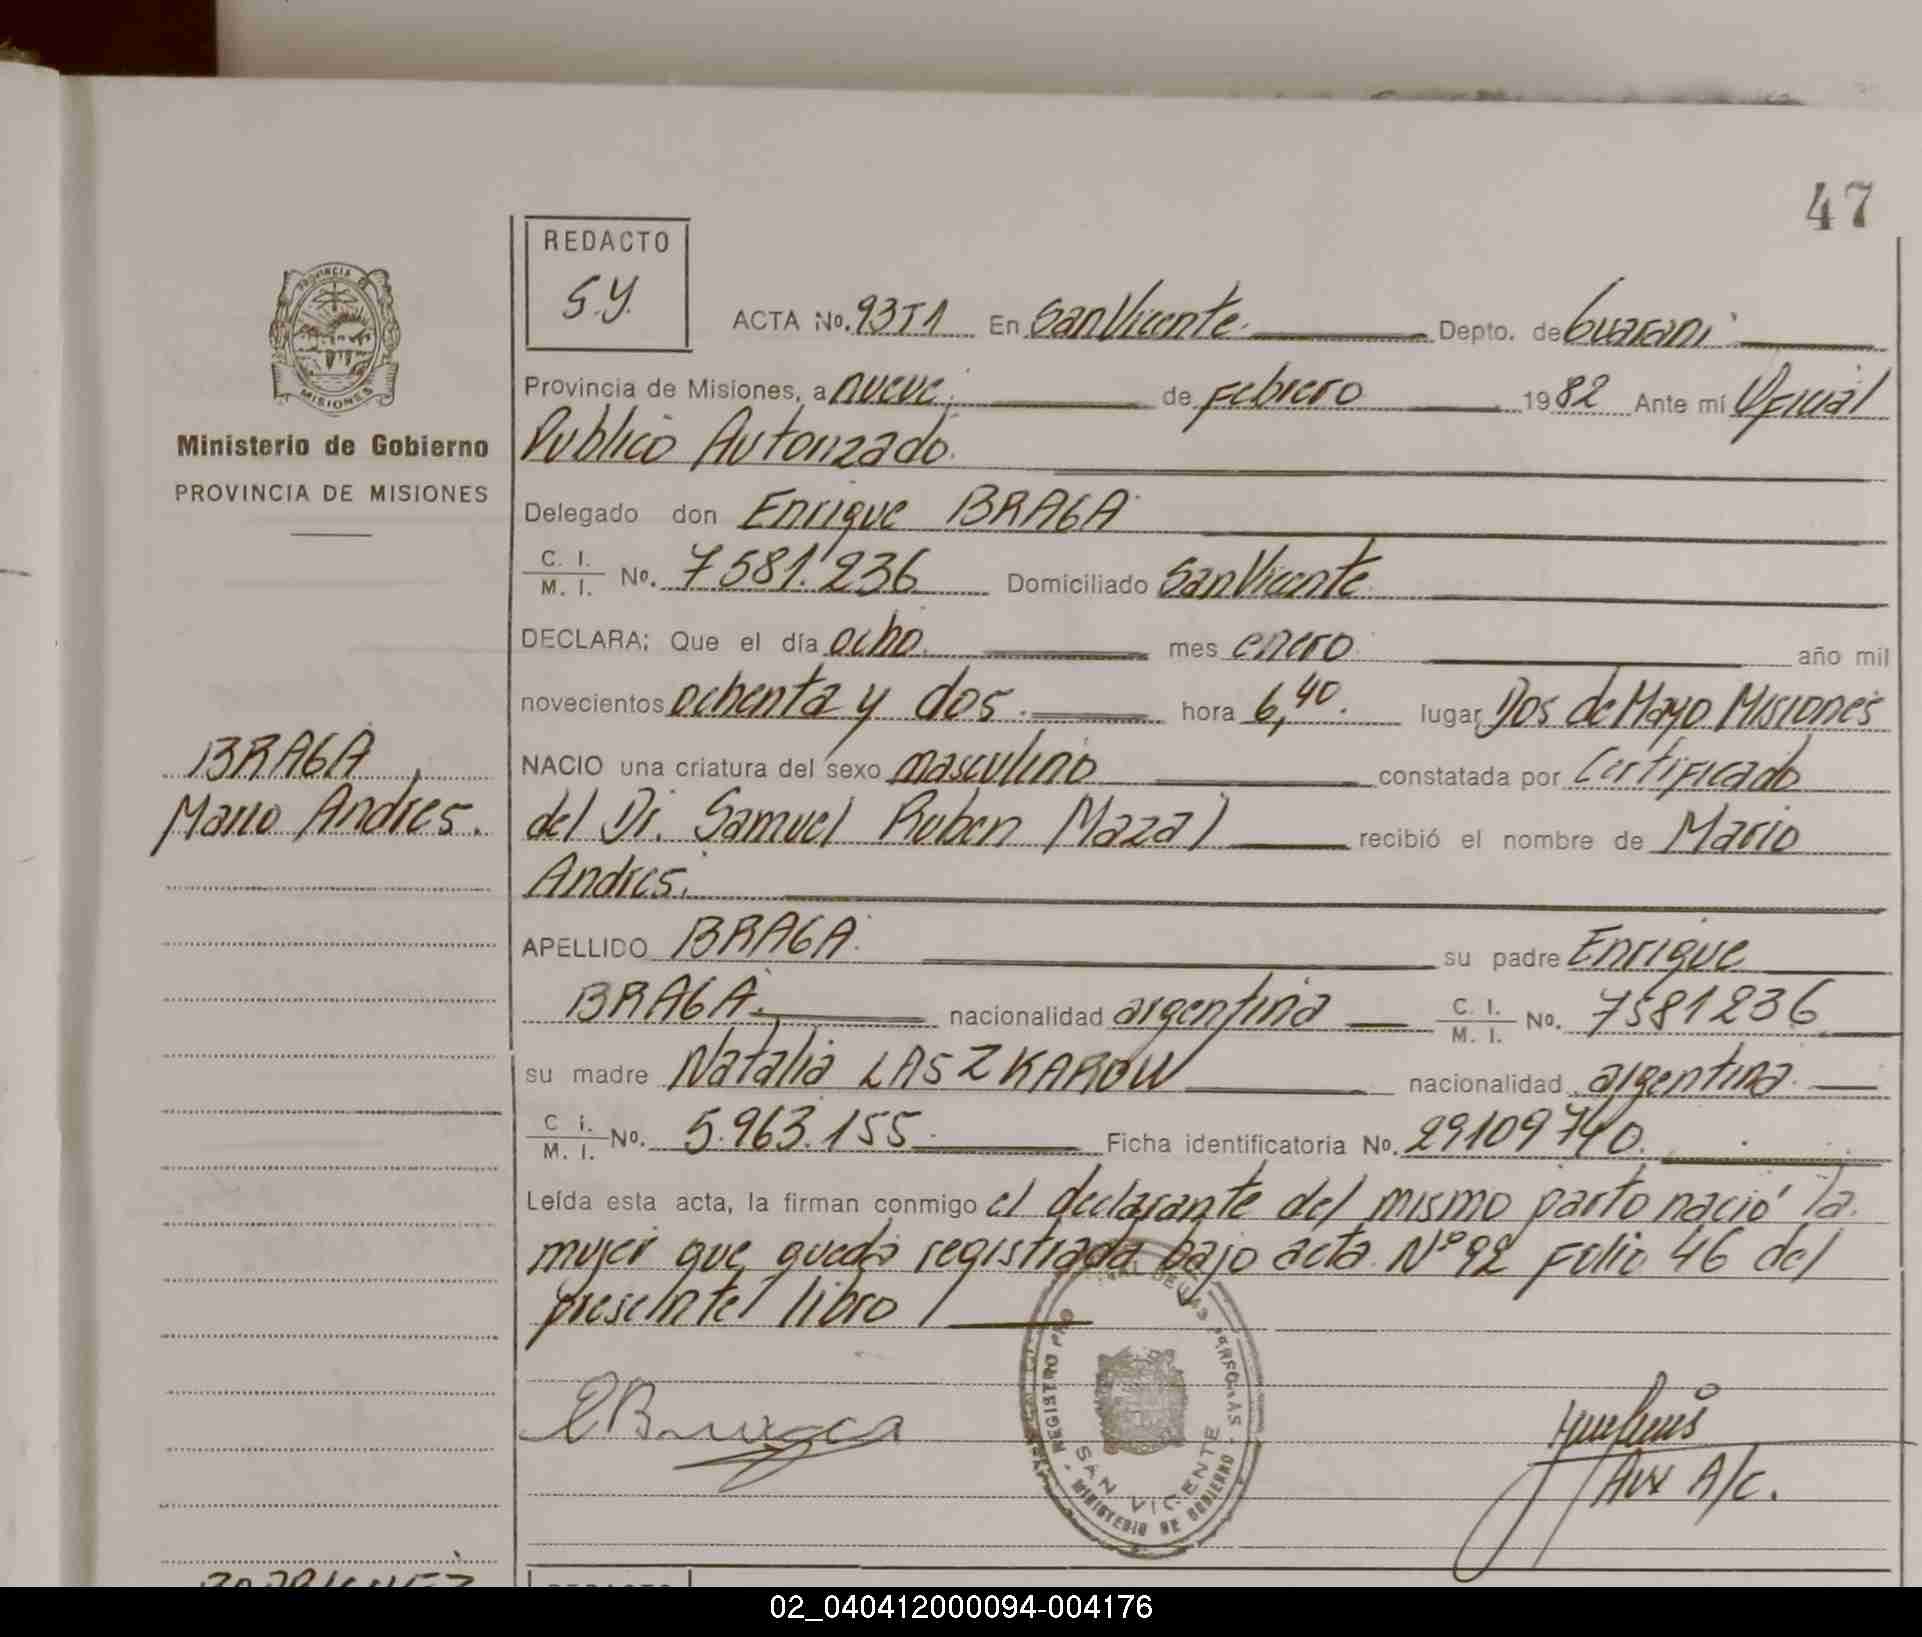 47
REDACTO
S.Y.
PROVINCIA DE
MISIONES
ACTA No. 93T1 En San Vicente. Depto. de Guarani
Provincia de Misiones, a nueve de Febrero 1982 Ante mí Oficial
Ministerio de Gobierno
Publico Autorizado.
PROVINCIA DE MISIONES
Delegado don Enrique BRAGA
C. I. / M. I. No. 7581.236 Domiciliado San Vicente
DECLARA; Que el día ocho. mes enero año mil
novecientos ochenta y dos. hora 6,40. lugar Dos de Mayo Misiones
BRAGA
Mario Andres.
NACIO una criatura del sexo masculino constatada por Certificado
del Dr. Samuel Ruben Mazal recibió el nombre de Mario
Andres.
APELLIDO BRAGA su padre Enrique
BRAGA. nacionalidad argentina C. I. / M. I. No. 7581236
su madre Natalia LASZKAROW nacionalidad argentina.
C i. / M. I. No. 5.963.155 Ficha identificatoria No. 29109740.
Leída esta acta, la firman conmigo el declarante del mismo parto nació la
mujer que queda registrada bajo acta Nº 92 Folio 46 del
presente libro
REGISTRO DE LAS PERSONAS
SAN VICENTE
MINISTERIO DE GOBIERNO
Aux A/c.
REDACTO
02_040412000094-004176